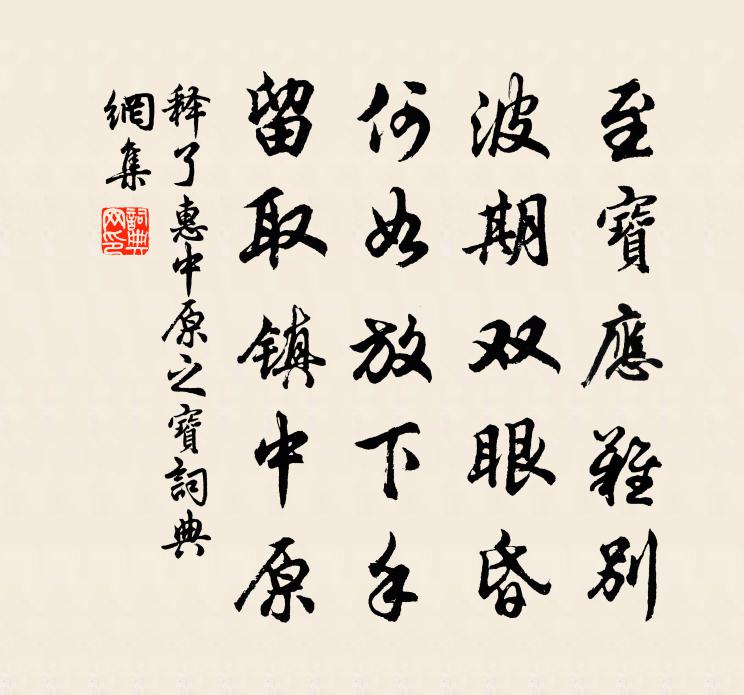 至寶應難別
波期双眼昏
何如放下手
留取镇中原
释了惠中原之寶詞典
網集
詞典网印